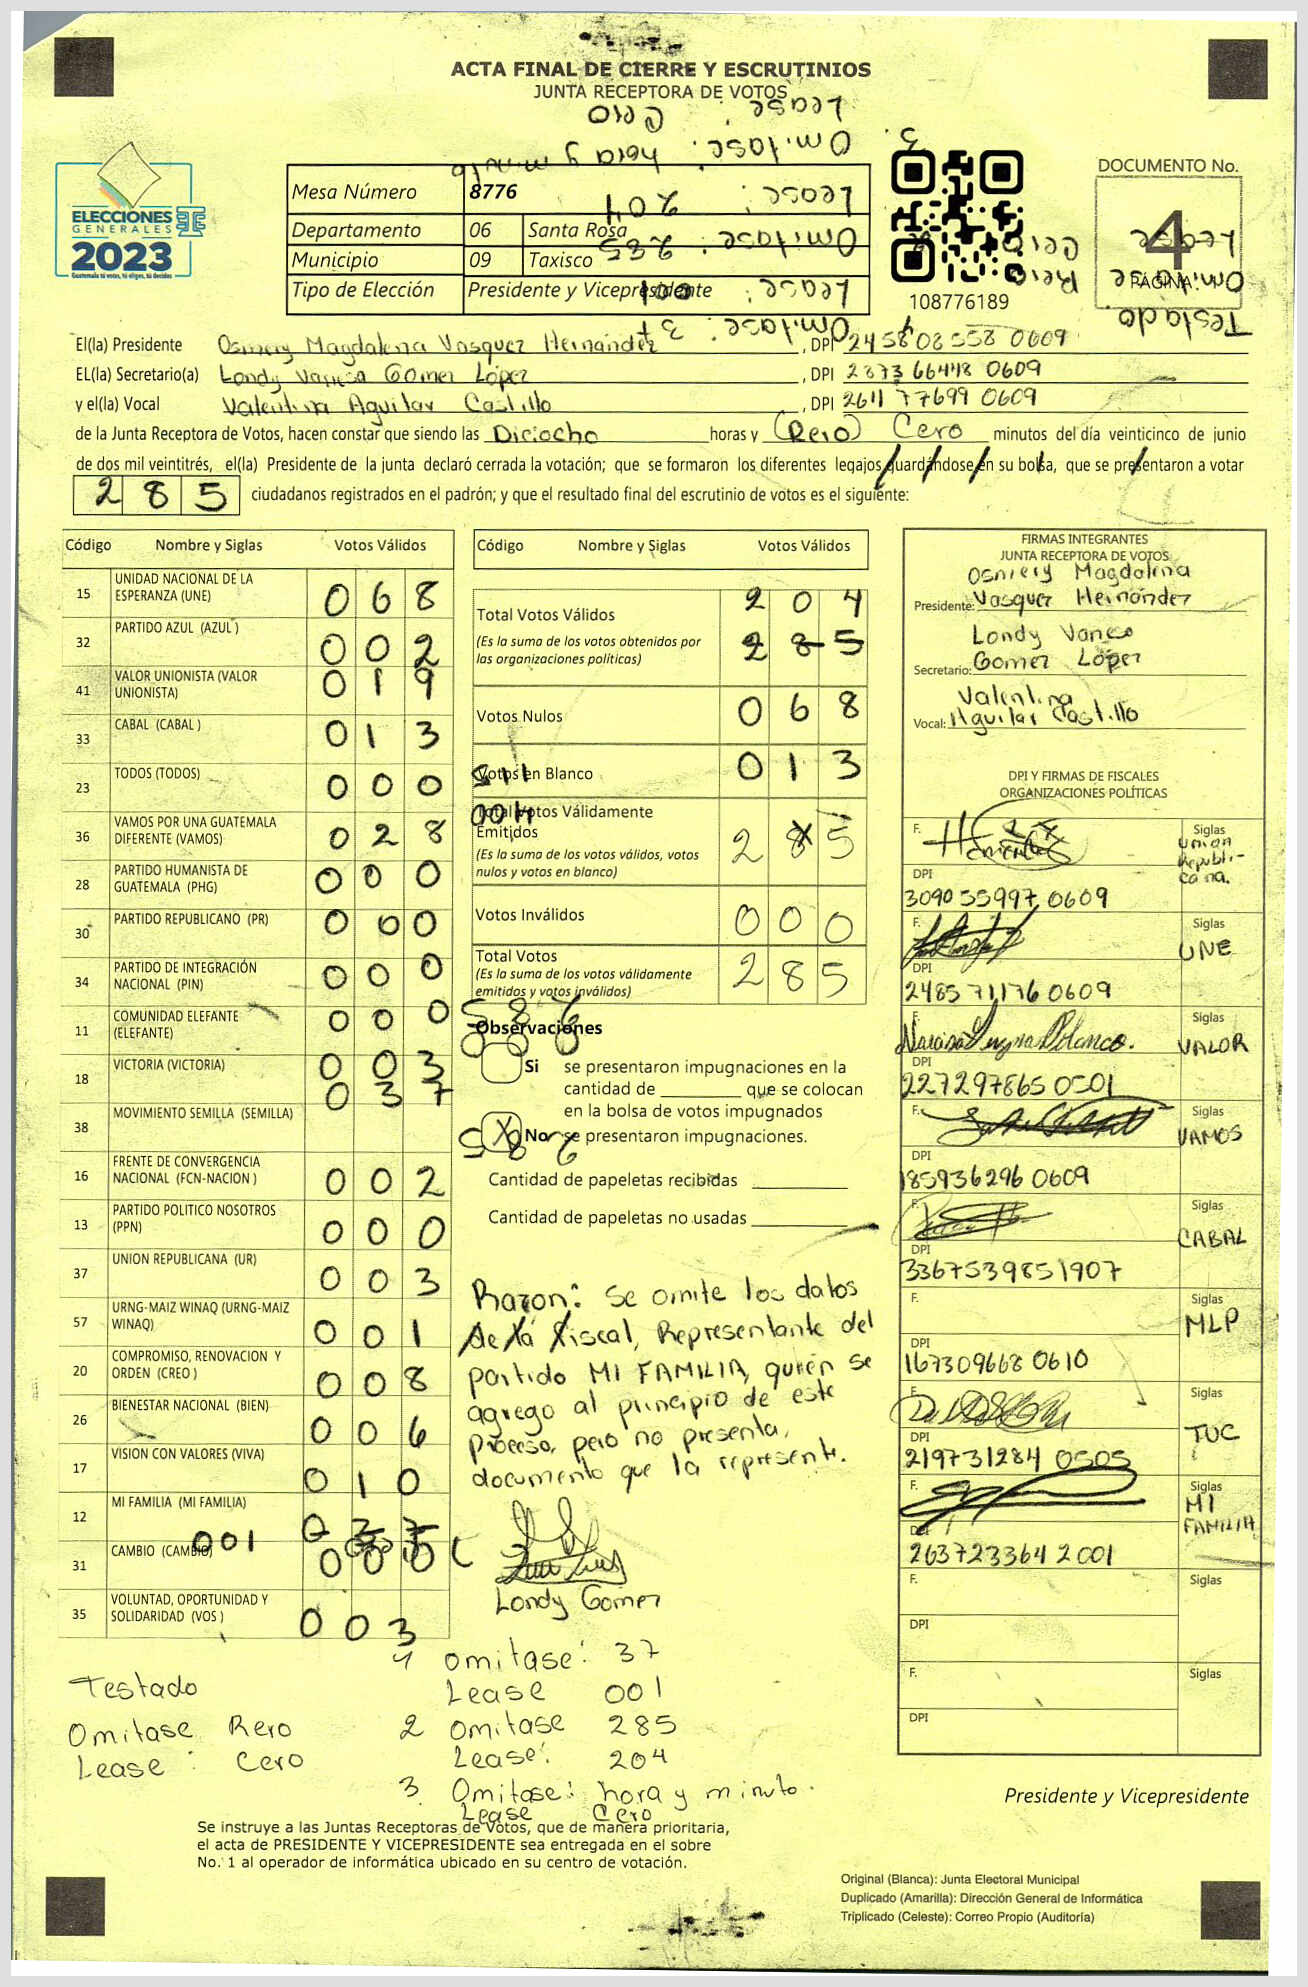 ACTA FINAL DE CIERRE Y ESCRUTINIOS
JUNTA RECEPTORA DE VOTOS
Lease: Cero
3. Omitase: hora y minuto
Lease: 204
Omitase: 285
Lease: 001
Omitase: 37
Testado
Omitase Rero
Lease Cero
ELECCIONES
GENERALES
2023
Guatemala tú votas, tú eliges, tú decides
Mesa Número 8776
Departamento 06 Santa Rosa
Municipio 09 Taxisco
Tipo de Elección Presidente y Vicepresidente
108776189
DOCUMENTO No.
4
PÁGINA
El(la) Presidente Osmery Magdalena Vasquez Hernández, DPI 2458 08558 0609
EL(la) Secretario(a) Londy Vanesa Gomez López, DPI 2873 66448 0609
y el(la) Vocal Valentina Aguilar Castillo, DPI 2611 77699 0609
de la Junta Receptora de Votos, hacen constar que siendo las Diciocho horas y (Rero) Cero minutos del día veinticinco de junio
de dos mil veintitrés, el(la) Presidente de la junta declaró cerrada la votación; que se formaron los diferentes legajos guardándose en su bolsa, que se presentaron a votar
285 ciudadanos registrados en el padrón; y que el resultado final del escrutinio de votos es el siguiente:
Código Nombre y Siglas Votos Válidos
15 UNIDAD NACIONAL DE LA ESPERANZA (UNE) 068
32 PARTIDO AZUL (AZUL ) 002
41 VALOR UNIONISTA (VALOR UNIONISTA) 019
33 CABAL (CABAL ) 013
23 TODOS (TODOS) 000
36 VAMOS POR UNA GUATEMALA DIFERENTE (VAMOS) 028
28 PARTIDO HUMANISTA DE GUATEMALA (PHG) 000
30 PARTIDO REPUBLICANO (PR) 000
34 PARTIDO DE INTEGRACIÓN NACIONAL (PIN) 000
11 COMUNIDAD ELEFANTE (ELEFANTE) 000
18 VICTORIA (VICTORIA) 003
38 MOVIMIENTO SEMILLA (SEMILLA) 037
16 FRENTE DE CONVERGENCIA NACIONAL (FCN-NACION ) 002
13 PARTIDO POLITICO NOSOTROS (PPN) 000
37 UNION REPUBLICANA (UR) 003
57 URNG-MAIZ WINAQ (URNG-MAIZ WINAQ) 001
20 COMPROMISO, RENOVACION Y ORDEN (CREO ) 008
26 BIENESTAR NACIONAL (BIEN) 006
17 VISION CON VALORES (VIVA) 010
12 MI FAMILIA (MI FAMILIA) 037
001
31 CAMBIO (CAMBIO) 000
35 VOLUNTAD, OPORTUNIDAD Y SOLIDARIDAD (VOS ) 003
Código Nombre y Siglas Votos Válidos
Total Votos Válidos 204
(Es la suma de los votos obtenidos por las organizaciones políticas) 285
Votos Nulos 068
Votos en Blanco 013
Total Votos Válidamente Emitidos
(Es la suma de los votos válidos, votos nulos y votos en blanco) 285
Votos Inválidos 000
Total Votos
(Es la suma de los votos válidamente emitidos y votos inválidos) 285
Observaciones
Si se presentaron impugnaciones en la
cantidad de que se colocan
en la bolsa de votos impugnados
X No se presentaron impugnaciones.
Cantidad de papeletas recibidas
Cantidad de papeletas no usadas
Razon: Se omite los datos
de la fiscal, Representante del
partido MI FAMILIA, quien se
agrego al principio de este
proceso, pero no presenta,
documento que la represente.
Londy Gomez
FIRMAS INTEGRANTES
JUNTA RECEPTORA DE VOTOS
Presidente: Osmery Magdalena Vasquez Hernández
Secretario: Londy Vanesa Gomez López
Vocal: Valentina Aguilar Castillo
DPI Y FIRMAS DE FISCALES
ORGANIZACIONES POLÍTICAS
F. Siglas Union Republicana.
DPI 3090 55997 0609
F. Siglas UNE
DPI 2485 71176 0609
F. Siglas VALOR
DPI 227297865 0501
F. Siglas VAMOS
DPI 185936296 0609
F. Siglas CABAL
DPI 3367539851907
F. Siglas MLP
DPI 167309668 0610
F. Siglas TUC
DPI 219731284 0505
F. Siglas MI FAMILIA
DPI 263723364 2001
F. Siglas
DPI
F. Siglas
DPI
Testado
Omitase Rero
Lease: Cero
1 omitase: 37
Lease 001
2 Omitase 285
Lease: 204
3. Omitase: hora y minuto.
Lease Cero
Presidente y Vicepresidente
Se instruye a las Juntas Receptoras de Votos, que de manera prioritaria,
el acta de PRESIDENTE Y VICEPRESIDENTE sea entregada en el sobre
No. 1 al operador de informática ubicado en su centro de votación.
Original (Blanca): Junta Electoral Municipal
Duplicado (Amarilla): Dirección General de Informática
Triplicado (Celeste): Correo Propio (Auditoría)